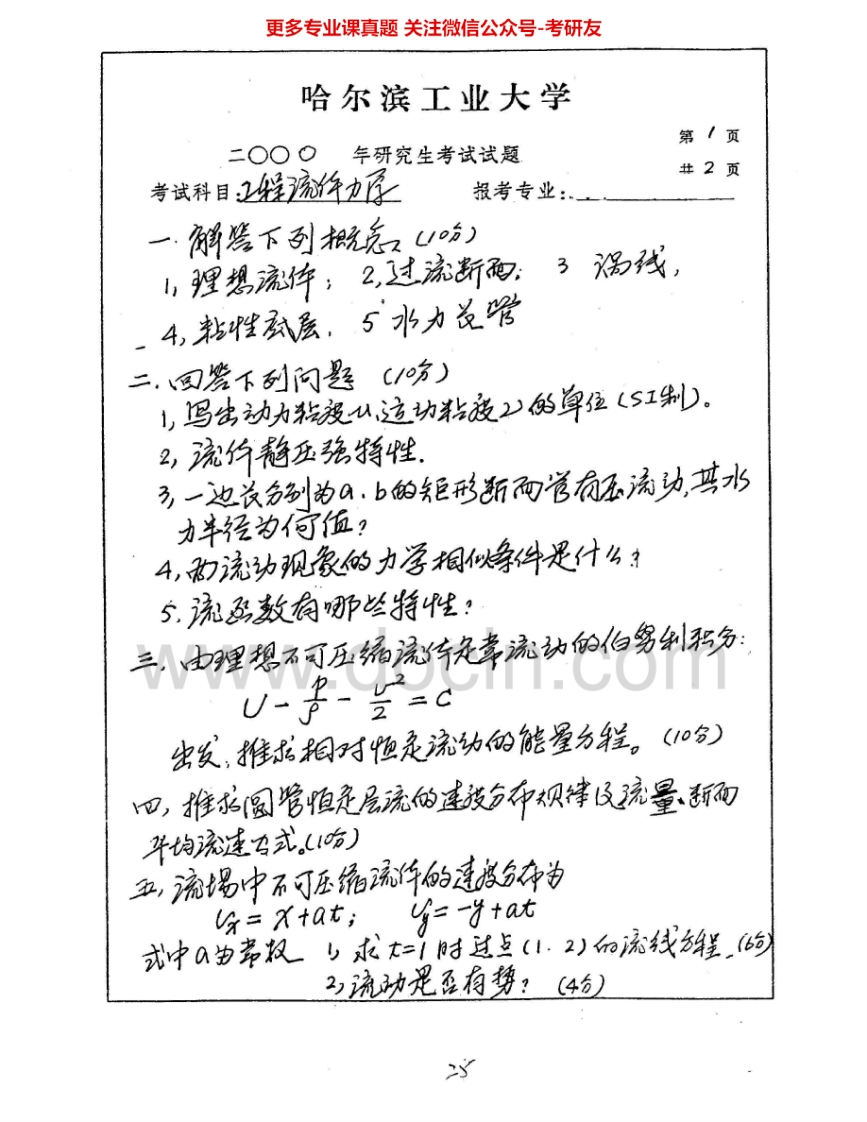 更多专业课真题 关注微信公众号-考研友
哈尔滨工业大学
第 1 页
二〇〇〇 年研究生考试试题
共 2 页
考试科目:工程流体力学 报考专业:
一. 解答下列概念。(10分)
1, 理想流体; 2, 过流断面; 3 涡线,
4, 粘性底层. 5 水力长管
二. 回答下列问题 (10分)
1, 写出动力粘度μ、运动粘度ν的单位(SI制)。
2, 流体静压强特性.
3, 一边长分别为a.b的矩形断面管有压流动,其水
力半径为何值?
4, 两流动现象的力学相似条件是什么?
5. 流函数有哪些特性?
www.docin.com
三. 由理想不可压缩流体定常流动的伯努利积分:
U - p/ρ - u²/2 = C
出发, 推求相对恒定流动的能量方程。(10分)
四, 推求圆管恒定层流的速度分布规律及流量、断面
平均流速公式。(10分)
五, 流场中不可压缩流体的速度分布为
Ux = x+at; Uy = -y+at
式中a为常数 1) 求t=1时过点(1.2)的流线方程.(6分)
2) 流动是否有势? (4分)
25